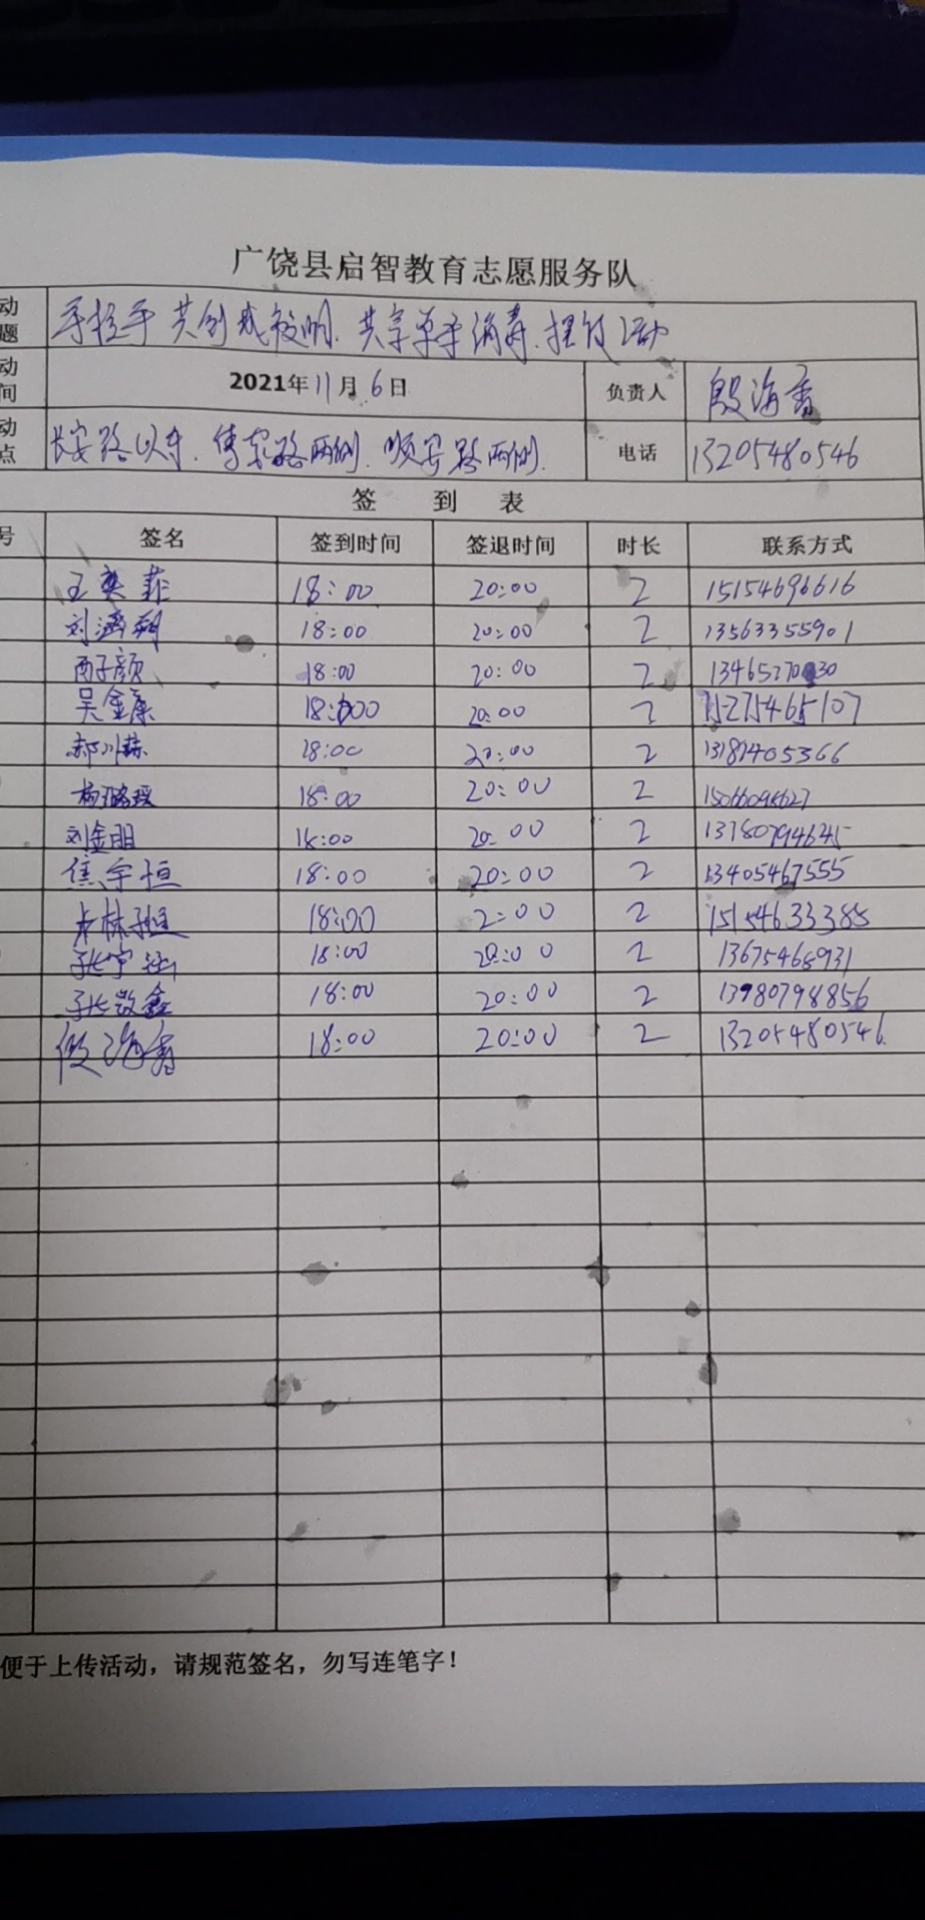 广饶县启智教育志愿服务队
动题 手拉手 共创文明、共享单车消毒、摆放活动
动间 2021年11月6日 负责人 殷海香
动点 长安路以东、傅家路两侧、顺安路两侧. 电话 13205480546
签 到 表
号 签名 签到时间 签退时间 时长 联系方式
王奕菲 18:00 20:00 2 15154696616
刘涵 18:00 20:00 2 13563355901
子颜 18:00 20:00 2
吴金康 18:00 20:00 2 15275465107
郝川 18:00 20:00 2 13181405366
杨璐 18:00 20:00 2
刘金明 18:00 20:00 2
焦宇恒 18:00 20:00 2 13405467555
林 18:00 2:00 2 15154633385
张宇 18:00 20:00 2 13675468931
张敬鑫 18:00 20:00 2 13980798856
殷海香 18:00 20:00 2 13205480546
便于上传活动，请规范签名，勿写连笔字！